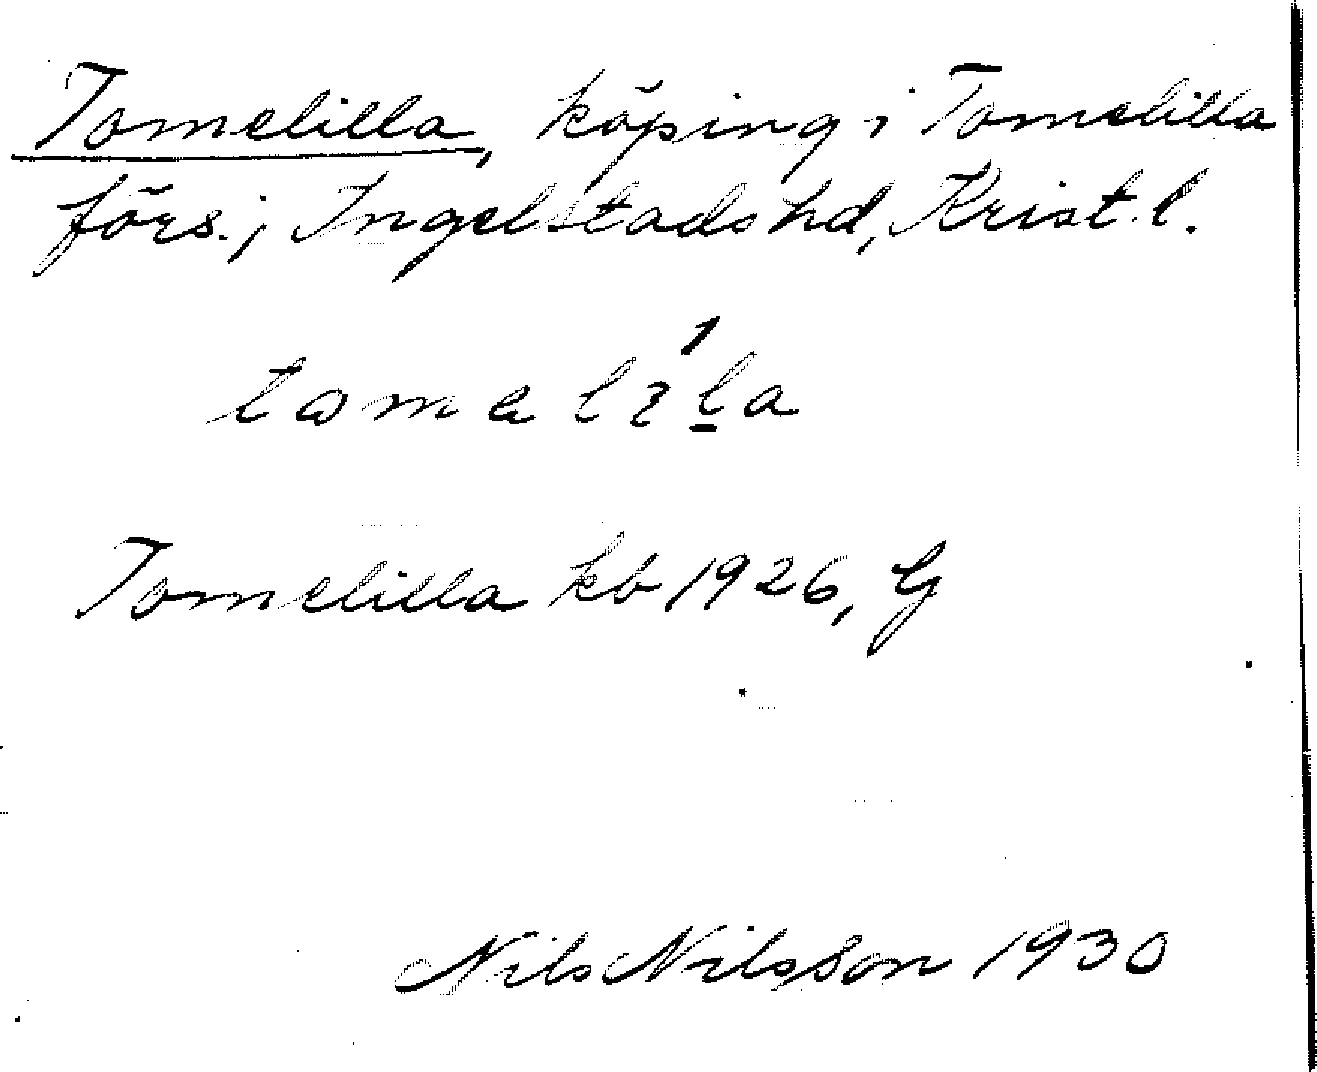 Tomelilla, köping i Tomelilla
förs., Ingelstads hd, Krist. l.
tomelíl̲a
Tomelilla kb 1926, G
Nils Nilsson 1930